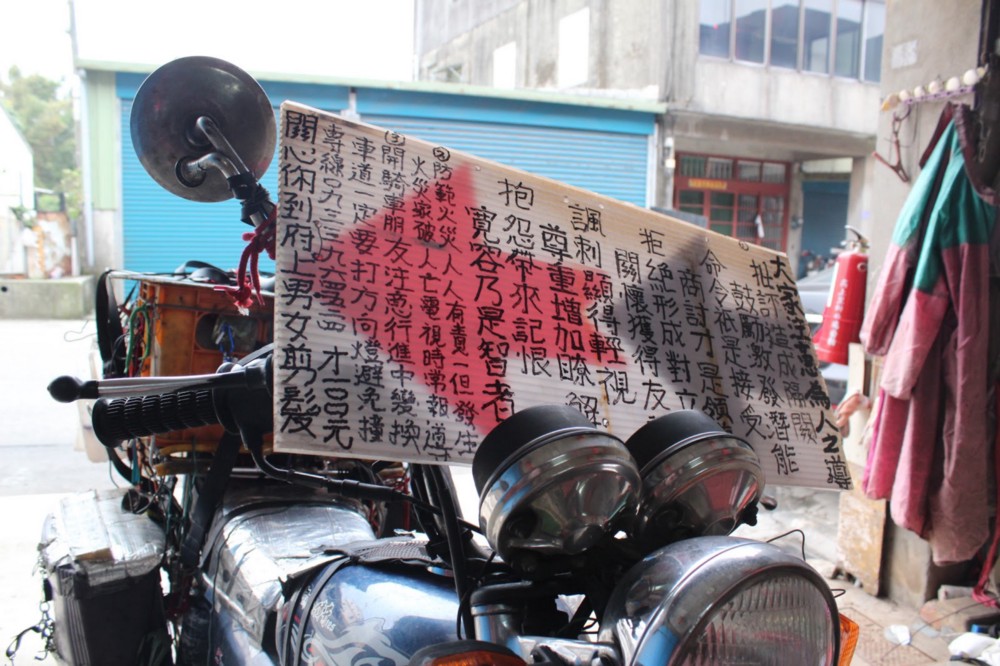 大家注意為人之導
批評造成隔閡
鼓勵激發潛能
命令祇是接受
商討才是領
拒絕形成對立
關懷獲得友
諷刺顯得輕視
尊重增加瞭解
抱怨帶來記恨
寬容乃是智者
②防範火災人人有責一但發生
火災家破人亡電視時常報導
③開騎車朋友注意行進中變換
車道一定要打方向燈避免撞
專線 才一〇〇元
關心你到府上男女剪髮